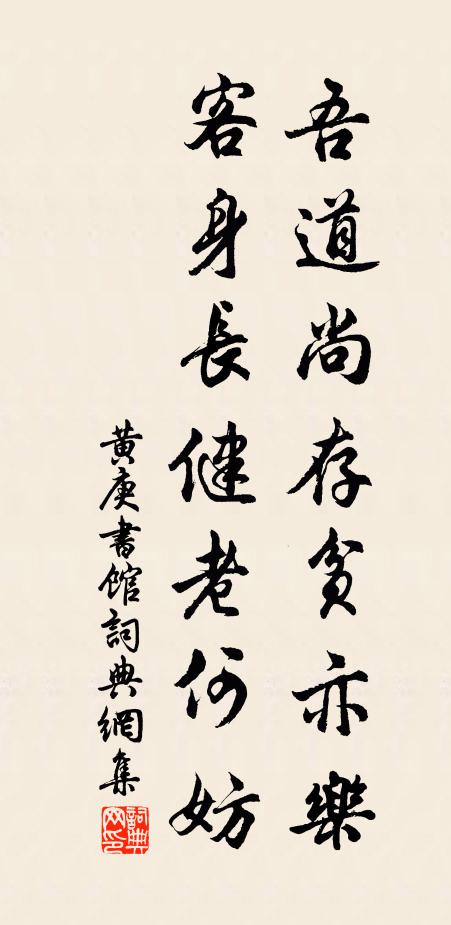 吾道尚存貧亦樂
客身長健老何妨
黄庚書館詞典網集
詞典网印